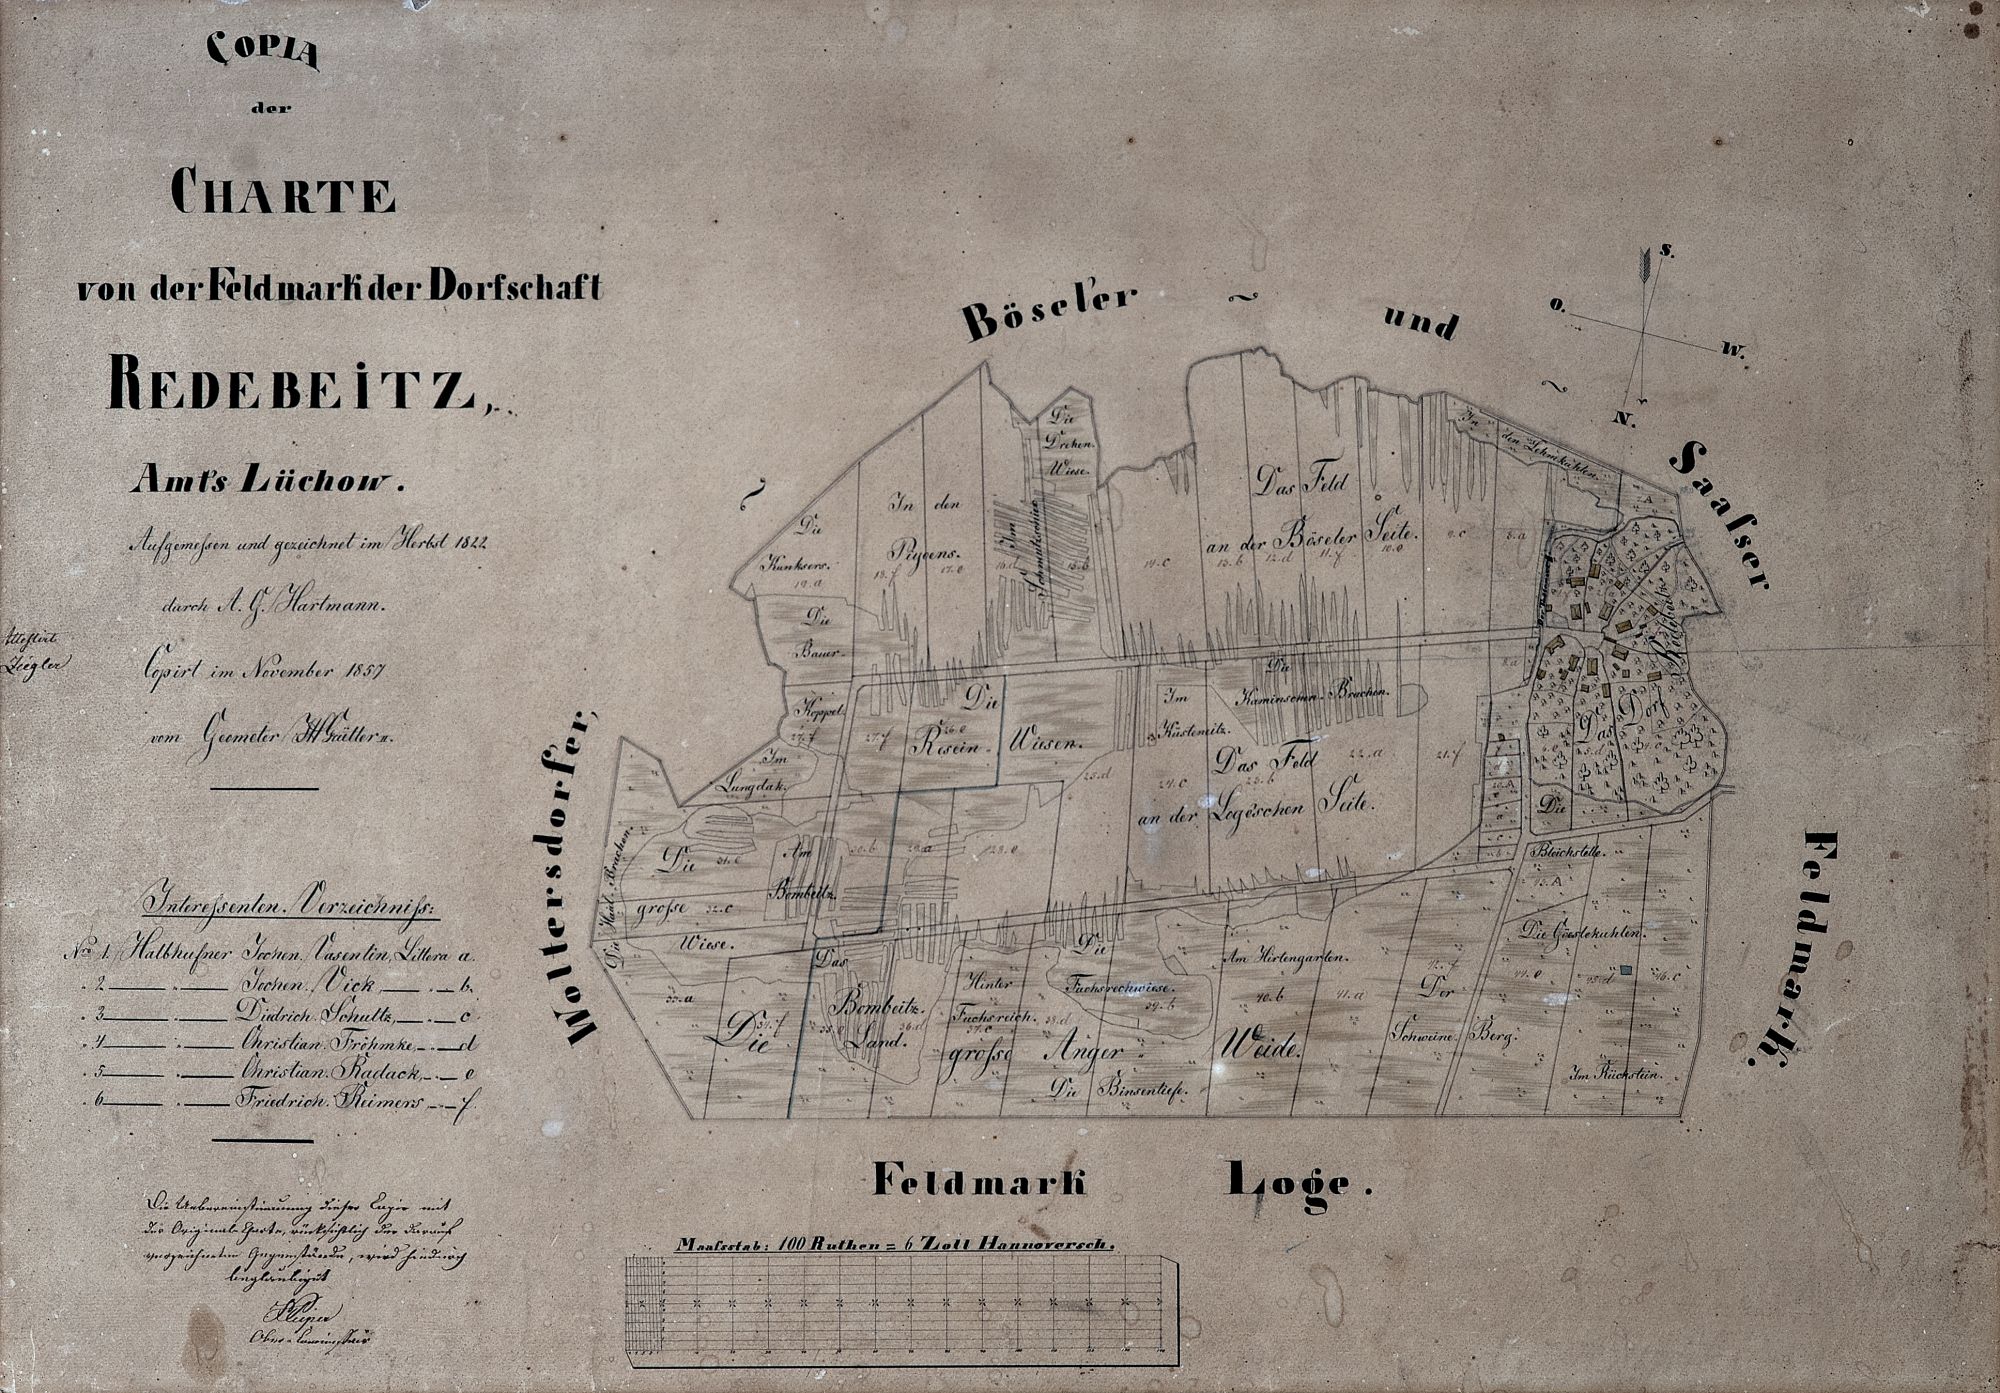 COPIA
der
CHARTE
von der Feldmark der Dorfschaft
REDEBEITZ,
Amts Lüchow.
Aufgemessen und gezeichnet im Herbst 1822
durch A. G. Hartmann.
Copirt im November 1857
vom Geometer
Attestirt
Ziegler
Interessenten-Verzeichniss:
Nro 1. Halbhufner Jochen Vasentin, Littera a.
" 2 — " — Jochen Vick, — " — b.
" 3 — " — Diedrich Schultz, — " — c
" 4 — " — Christian Fröhmke, — " — d
" 5 — " — Christian Radack, — " — e
" 6 — " — Friedrich Reimers — " — f.
Die Uebereinstimmung dieser Copie mit
der Original-Charte, rücksichtlich der darauf
verzeichneten Gegenstände, wird hiedurch
beglaubigt
Böseler und Saasser Feldmark.
Woltersdorfer,
Feldmark Loge.
S.
O.
W.
N.
Die
Drehen-
Wiese.
In den Lehmkuhlen.
Das Feld
an der Böseler Seite.
14.c 13.b 12.d 11.f 10.e 9.c 8.a
In den
Pigoens.
18.f 17.e 16.d 15.b
Im
Die
Kunksers.
19.a
Die
Bauer-
Koppel.
27.f
Die
Resein- Wiesen.
27.f 26.e 25.d
Im
Küstemitz.
Die
Kaminschen-Brachen.
Das Feld
an der Logeschen Seite.
24.c 23.b 22.a 21.f
Redebeitz
Das Dorf
Die
Bleichstelle.
43.A
Im
Lungdak.
Die Haul-Brachen.
Die
grosse
Wiese.
31.e 32.c
Am
Bombeitz.
30.b 29.a 28.e
Das
Bombeitz-
Land.
33.a 34.f 35.e 36.d
Hinter
Fuchsreich.
37.c 38.d
Die
Fuchsrechwiese.
39.b
Am Hirtengarten.
40.b 41.a 42.f
Die Göeslekuhlen.
44.e 45.d 46.c
Die grosse Anger Weide.
Der
Schweine-Berg.
Die Binsentiefe.
Im Rückstein.
Maasstab: 100 Ruthen = 6 Zoll Hannoversch.